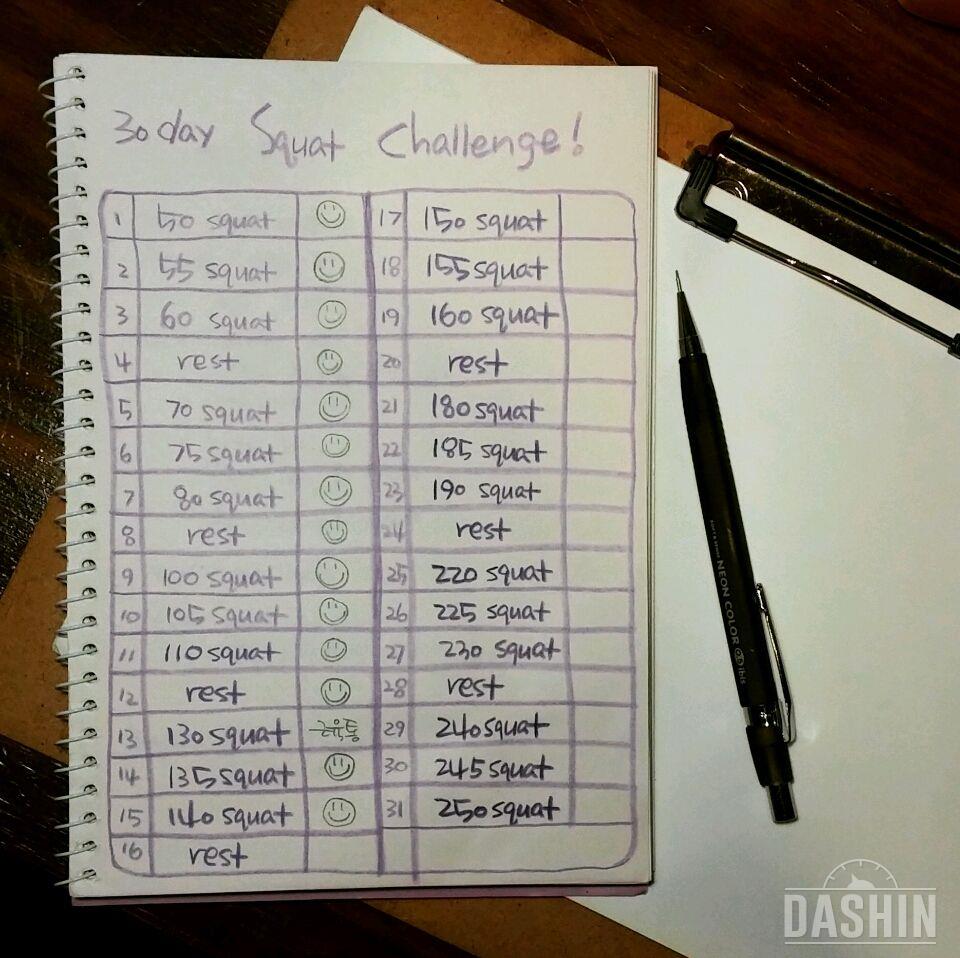 30 day Squat Challenge!
1 50 squat
2 55 squat
3 60 squat
4 rest
5 70 squat
6 75 squat
7 80 squat
8 rest
9 100 squat
10 105 squat
11 110 squat
12 rest
13 130 squat 근육통
14 135 squat
15 140 squat
16 rest
17 150 squat
18 155 squat
19 160 squat
20 rest
21 180 squat
22 185 squat
23 190 squat
24 rest
25 220 squat
26 225 squat
27 230 squat
28 rest
29 240 squat
30 245 squat
31 250 squat
NEON COLOR ibis
DASHIN